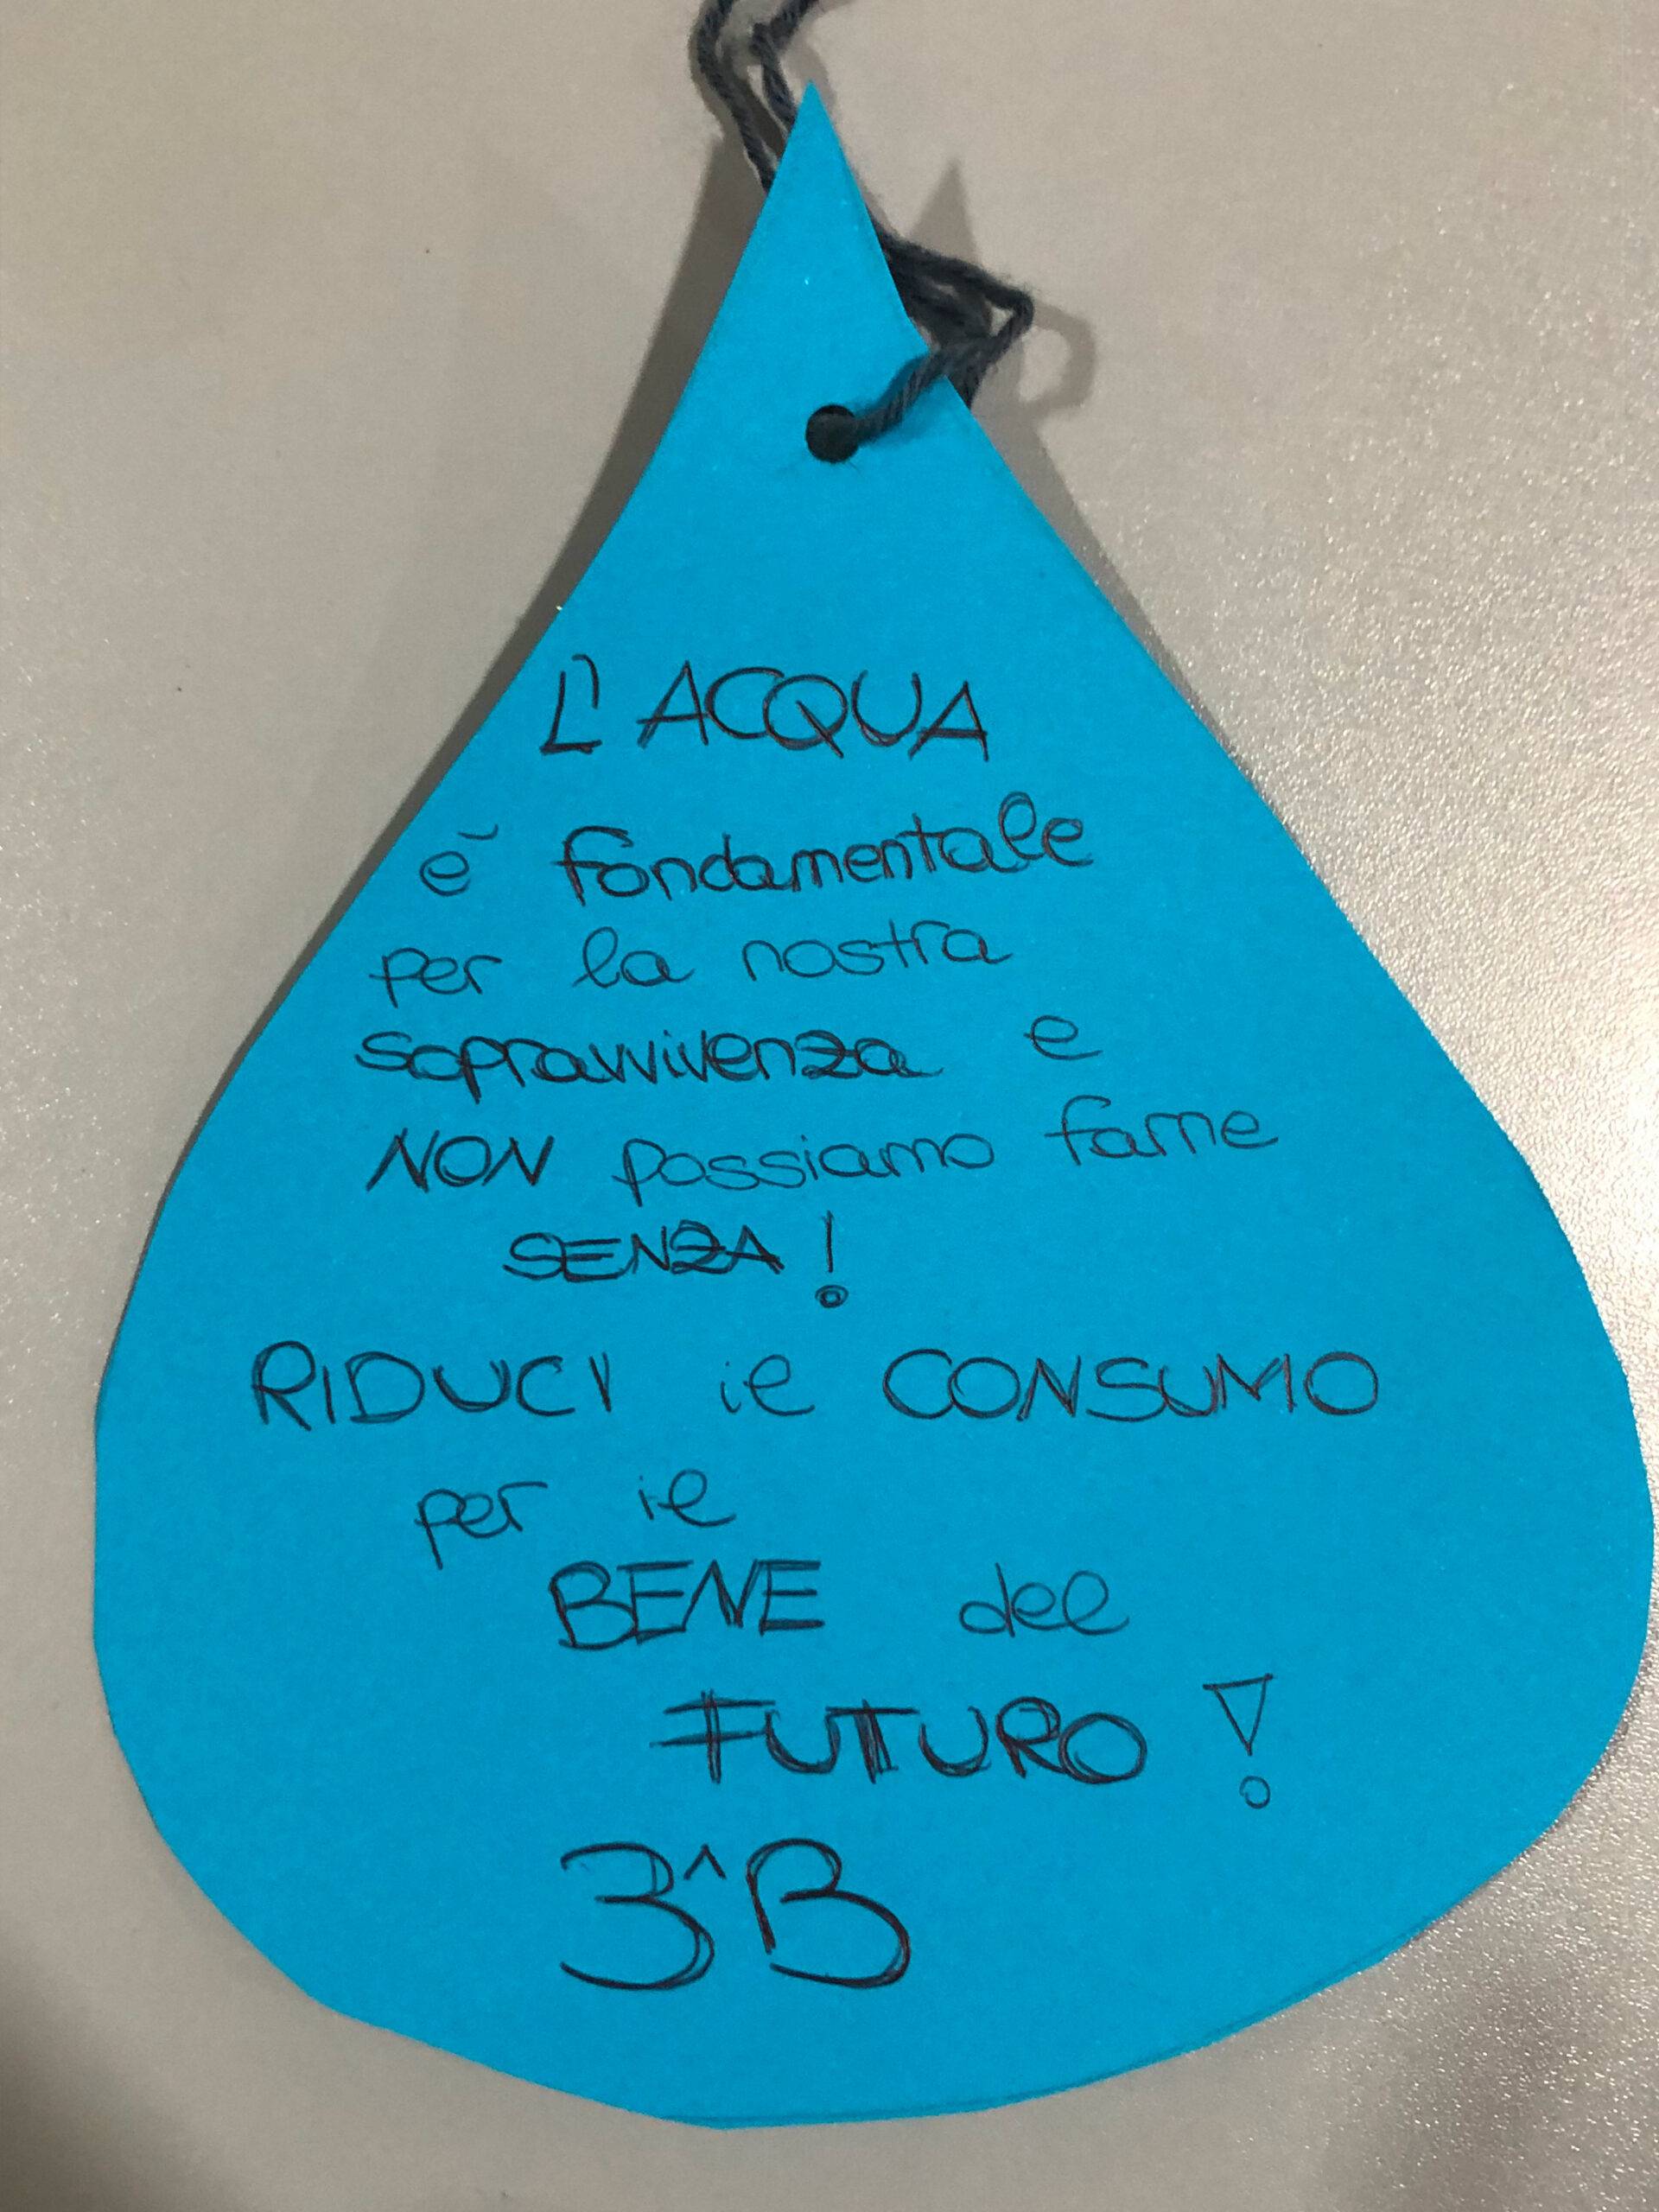 L'ACQUA
è fondamentale
per la nostra
sopravvivenza e
NON possiamo farne
SENZA!
RIDUCI il CONSUMO
per il
BENE del
FUTURO!
3^B